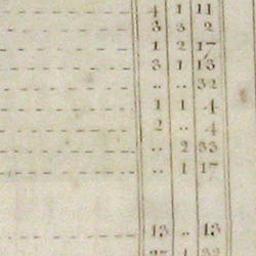 4 1 11
3 3 2
1 2 17
3 1 13
.. .. 32
1 1 4
2 .. 4
.. 2 33
.. 1 17
13 .. 13